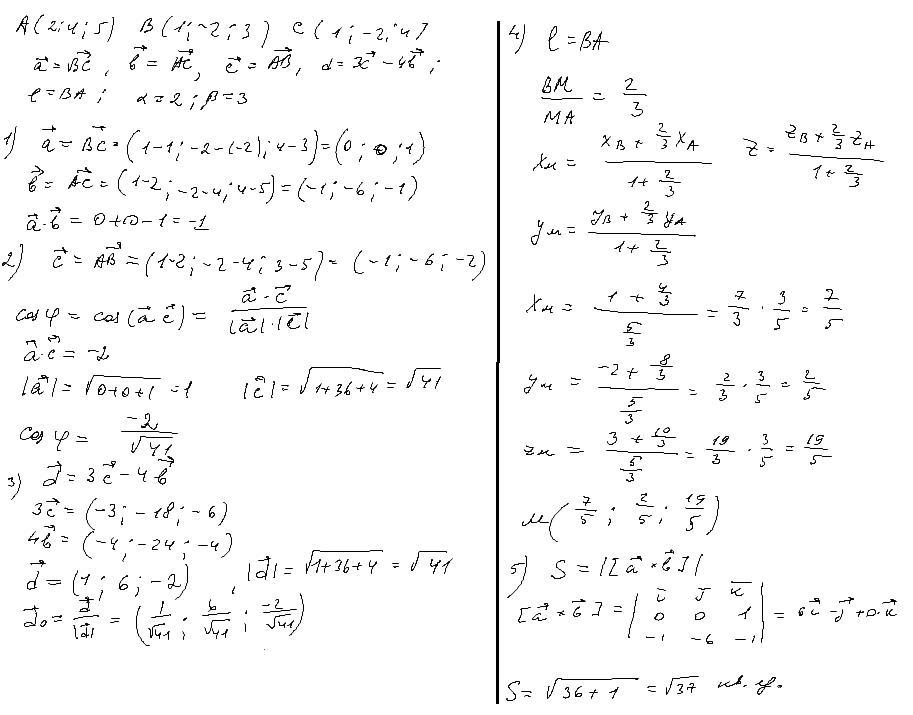 A(2;4;5) B(1;-2;3) C(1;-2;4)
a⃗ = BC⃗, b⃗ = AC⃗, c⃗ = AB⃗, d = 3c⃗ - 4b⃗;
l = BA; α = 2; β = 3
1) a⃗ = BC⃗ = (1-1; -2-(-2); 4-3) = (0; 0; 1)
b⃗ = AC⃗ = (1-2; -2-4; 4-5) = (-1; -6; -1)
a⃗·b⃗ = 0+0-1 = -1
2) c⃗ = AB⃗ = (1-2; -2-4; 3-5) = (-1; -6; -2)
cos φ = cos(a⃗ c⃗) = a⃗·c⃗ / |a⃗|·|c⃗|
a⃗·c⃗ = -2
|a⃗| = √(0+0+1) = 1 |c⃗| = √(1+36+4) = √41
cos φ = -2/√41
3) d⃗ = 3c⃗ - 4b⃗
3c⃗ = (-3; -18; -6)
4b⃗ = (-4; -24; -4)
d⃗ = (1; 6; -2), |d⃗| = √(1+36+4) = √41
d⃗₀ = d⃗/|d⃗| = (1/√41; 6/√41; -2/√41)
4) l = BA
BM/MA = 2/3
xм = (xB + 2/3 xA)/(1 + 2/3) z = (zB + 2/3 zA)/(1 + 2/3)
yм = (yB + 2/3 yA)/(1 + 2/3)
xм = (1 + 4/3)/(5/3) = 7/3 · 3/5 = 7/5
yм = (-2 + 8/3)/(5/3) = 2/3 · 3/5 = 2/5
zм = (3 + 10/3)/(5/3) = 19/3 · 3/5 = 19/5
M(7/5; 2/5; 19/5)
5) S = |[a⃗ × b⃗]|
[a⃗ × b⃗] = | i j k |
| 0 0 1 | = 6i⃗ - j⃗ + 0·k⃗
| -1 -6 -1 |
S = √(36+1) = √37 кв. ед.